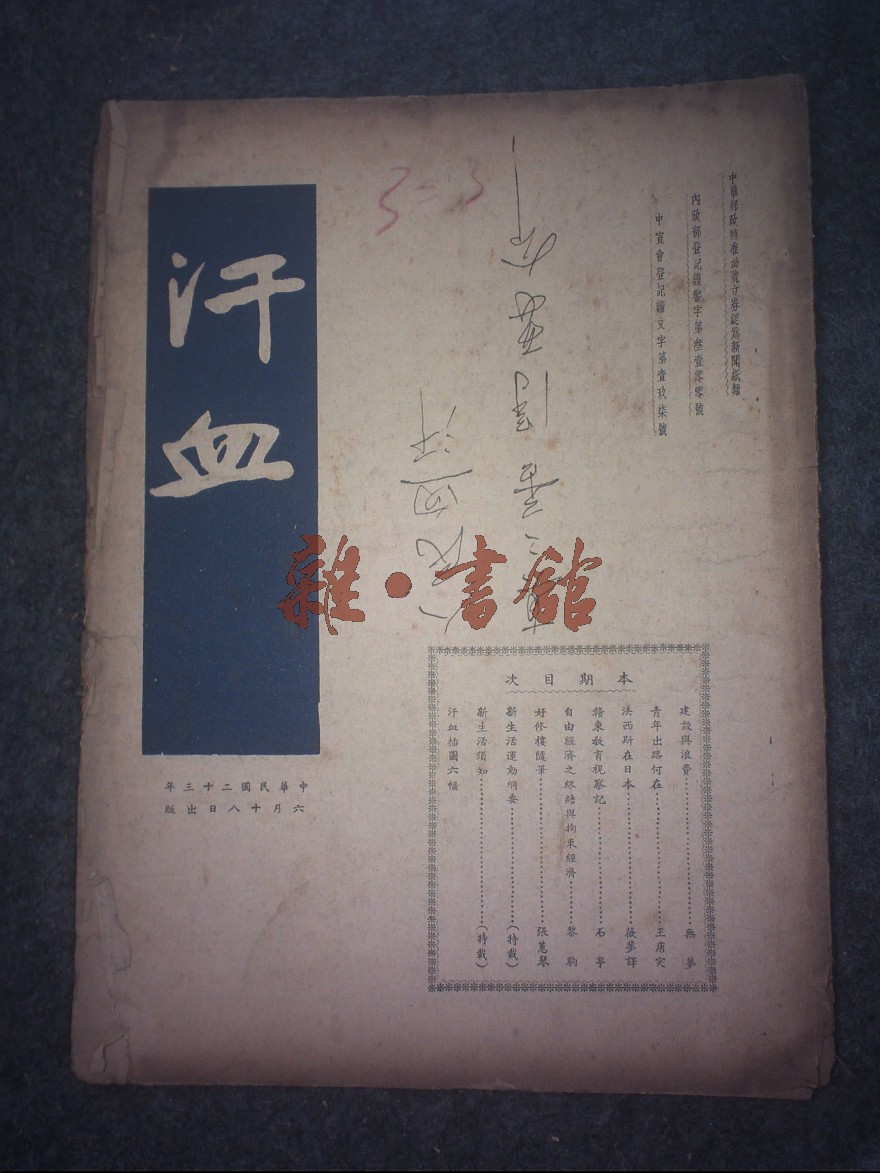 中華郵政特准掛號立券認爲新聞紙類
內政部登記證警字第叁壹零零號
中宣會登記證文字第壹玖柒號
汗血
3-3
本期目次
建設與浪費 無夢
青年出路何在 王唐突
法西斯在日本 薇夢譯
贛東教育視察記 石亭
自由經濟之終結與拘束經濟 黎駒
好修樓隨筆 張蕙琴
新生活運動綱要 (特載)
新生活須知 (特載)
汗血插圖六幅
中華民國二十三年
六月十八日出版
雜·書館